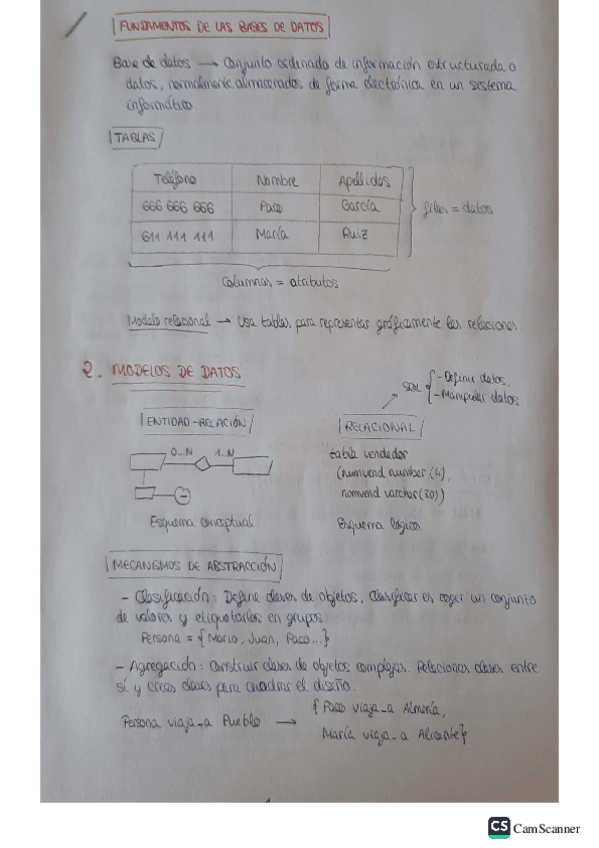 FUNDAMENTOS DE LAS BASES DE DATOS
Base de datos → Conjunto ordenado de información estructurada o
datos, normalmente almacenados de forma electrónica en un sistema
informático
TABLAS
Teléfono Nombre Apellidos
666 666 666 Paco García
611 111 111 María Ruiz
filas = datos
Columnas = atributos
Modelo relacional → Usa tablas para representar gráficamente las relaciones.
2. MODELOS DE DATOS
SQL { - Definir datos.
- Manipular datos
ENTIDAD-RELACIÓN
RELACIONAL
0..N 1..N
tabla vendedor
(numvend number (4),
nomvend varchar (30))
Esquema conceptual
Esquema lógico
MECANISMOS DE ABSTRACCIÓN
- Clasificación: Define clases de objetos. Clasificar es coger un conjunto
de valores y etiquetarlos en grupos.
Persona = { Mario, Juan, Paco...}
- Agregación: Construir clases de objetos complejas. Relacionar clases entre
sí y crear clases para cuadrar el diseño.
Persona viaja_a Pueblo → { Paco viaja_a Almería,
María viaja_a Alicante}
CS CamScanner